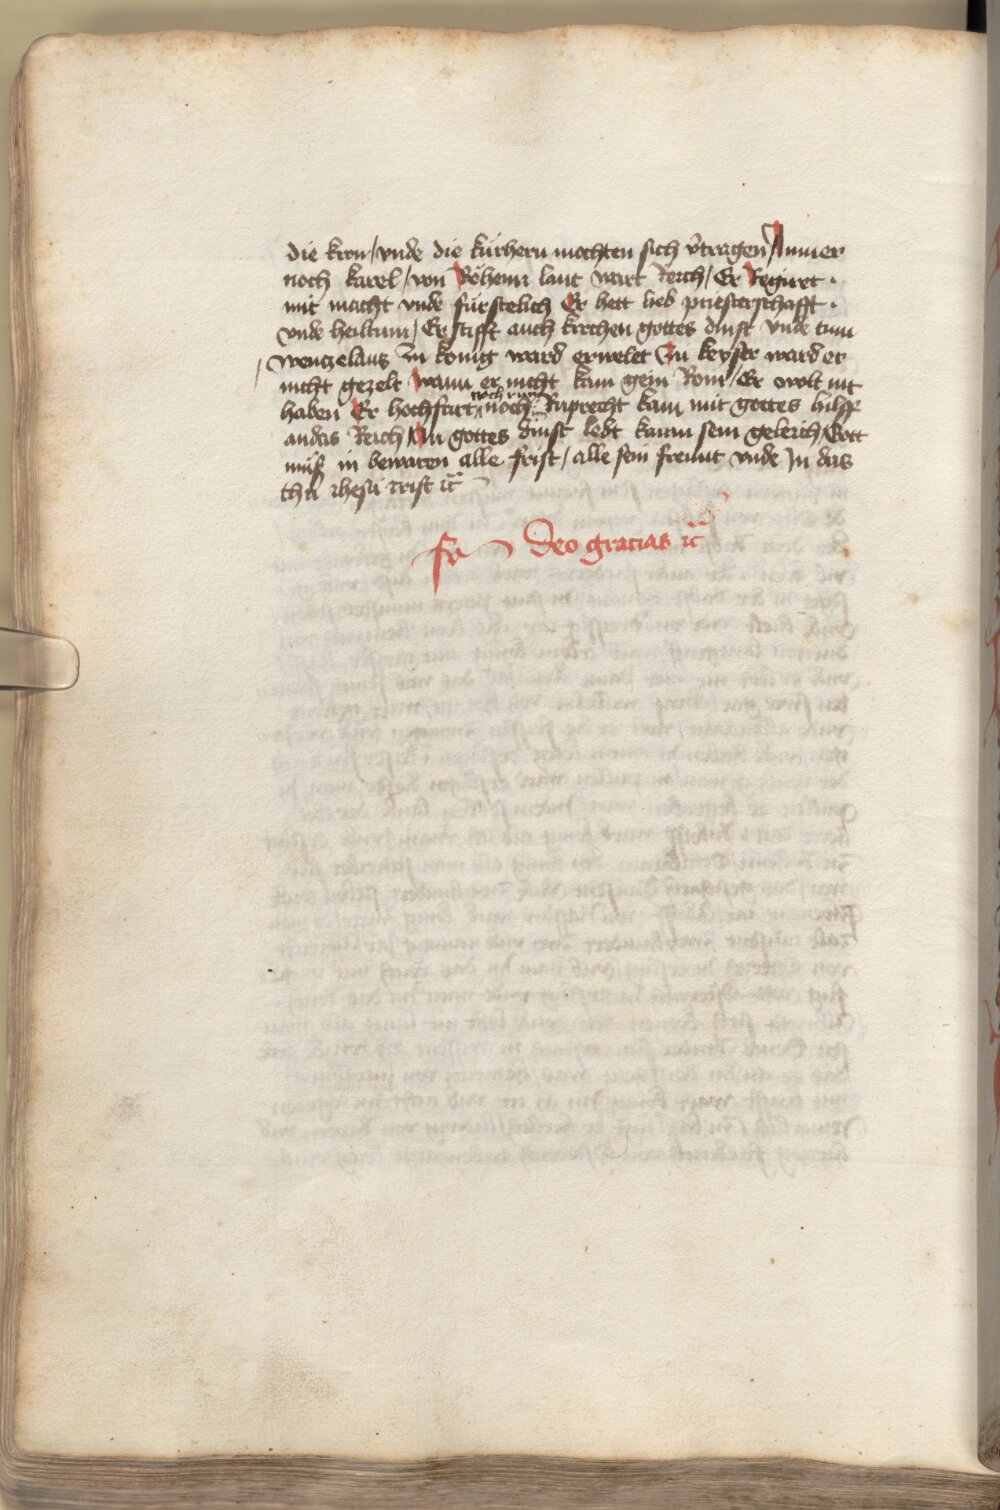 die kron / vnde die kurhern mochten sich v̉tragen / Immer
noch karel / von Böhemi lant wart Reich / Er Regiret ·
mit macht vnde fürstelich Er hett lieb priesterschafft ·
vnde heiltum / Er stifft auch kirchen gottes dinst vnde tum
wentzelaus zu konig ward erwelet Zu keyser ward er
nicht gezelt wann er nicht kam gein Rom / Er wolt nit
haben Er hochfart noch Ruprecht kam mit gottes hilff
andas Reich / In gottes dinst lebt kaum sein geleich / Gott
muß in bewaren alle frist / alle sein freunt vnde In das
ihesu crist ꝛc̄
deo gracias ꝛc̄